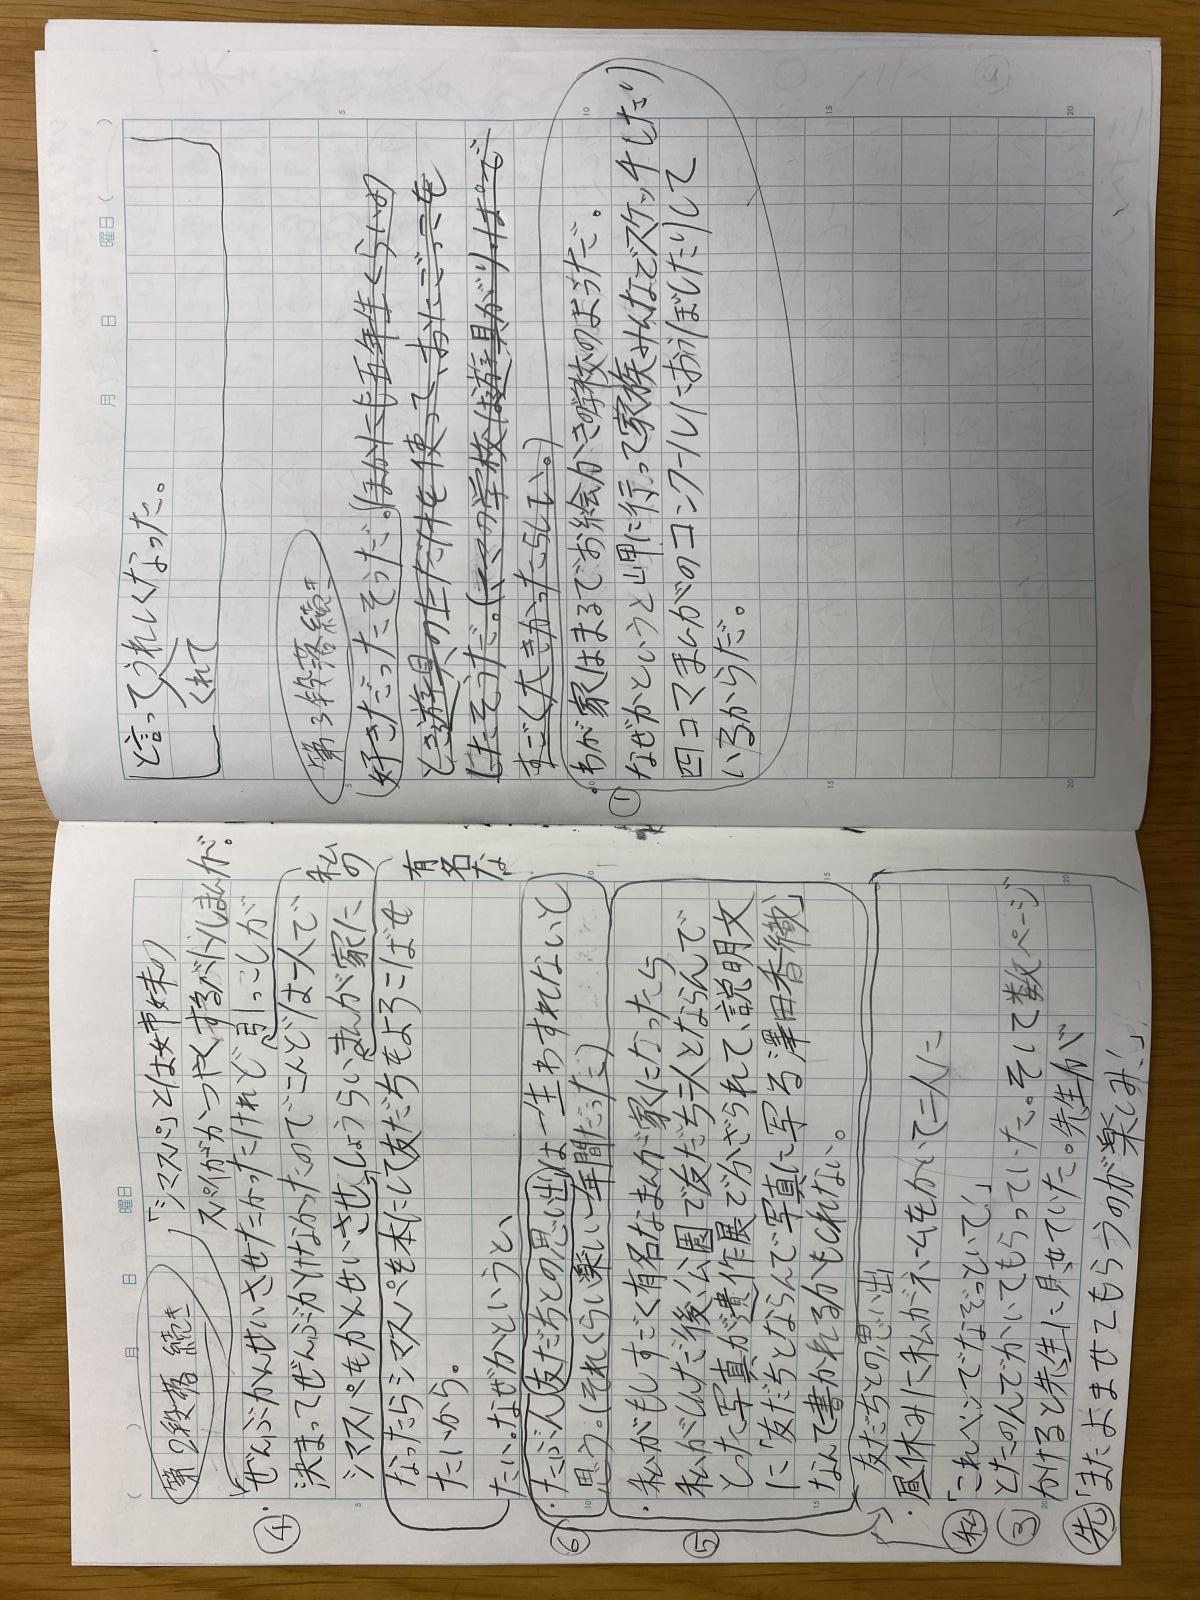 第2段落 続き
「シマスペ」とは姉妹の
スペイがかつやくするバトルまんが。
④
・ぜんぶかんせいさせたかったけれど引っこしが
決まってぜんぶかけなかったのでこんどは一人で
シマスペをかんせいさせ、しょうらいまんが家に
私の
なったらシマスペを本にして友だちをよろこばせ
有名な
たいから。
たい。なぜかというと、
⑥
・たぶん友だちとの思い出は一生わすれないと
思う。(それくらい楽しい一年間だった)
⑤
・私がもしすごく有名なまんが家になったら
私がしんだ後、公園で友だち二人とならんで
とった写真が遺作展でかざられて、説明文
に「友だちとならんで写真に写る澤田香織」
なんて書かれるかもしれない。
友だちとの思い出
・昼休みに私がネームをかいて二人に
私「これペンでなぞっといて」
③
とたのんでかいてもらっていた。そして数ページ
かけると先生に見せていた。先生が
先「またよませてもらうのが楽しみ!」
と言ってうれしくなった。
くれて
第3段落続き
好きだったそうだ。(ほかにも五年生くらいの
とき遊具の上だけを使って、おにごっこを
したそうだ。(ママの学校は遊具がりっぱで
すごく大きかったらしい。)
①
・わが家はまるでお絵かき学校のようだ。
なぜかというと岬に行って家族みんなでスケッチしたり
四コマまんがのコンクールにおうぼしたりして
いるからだ。